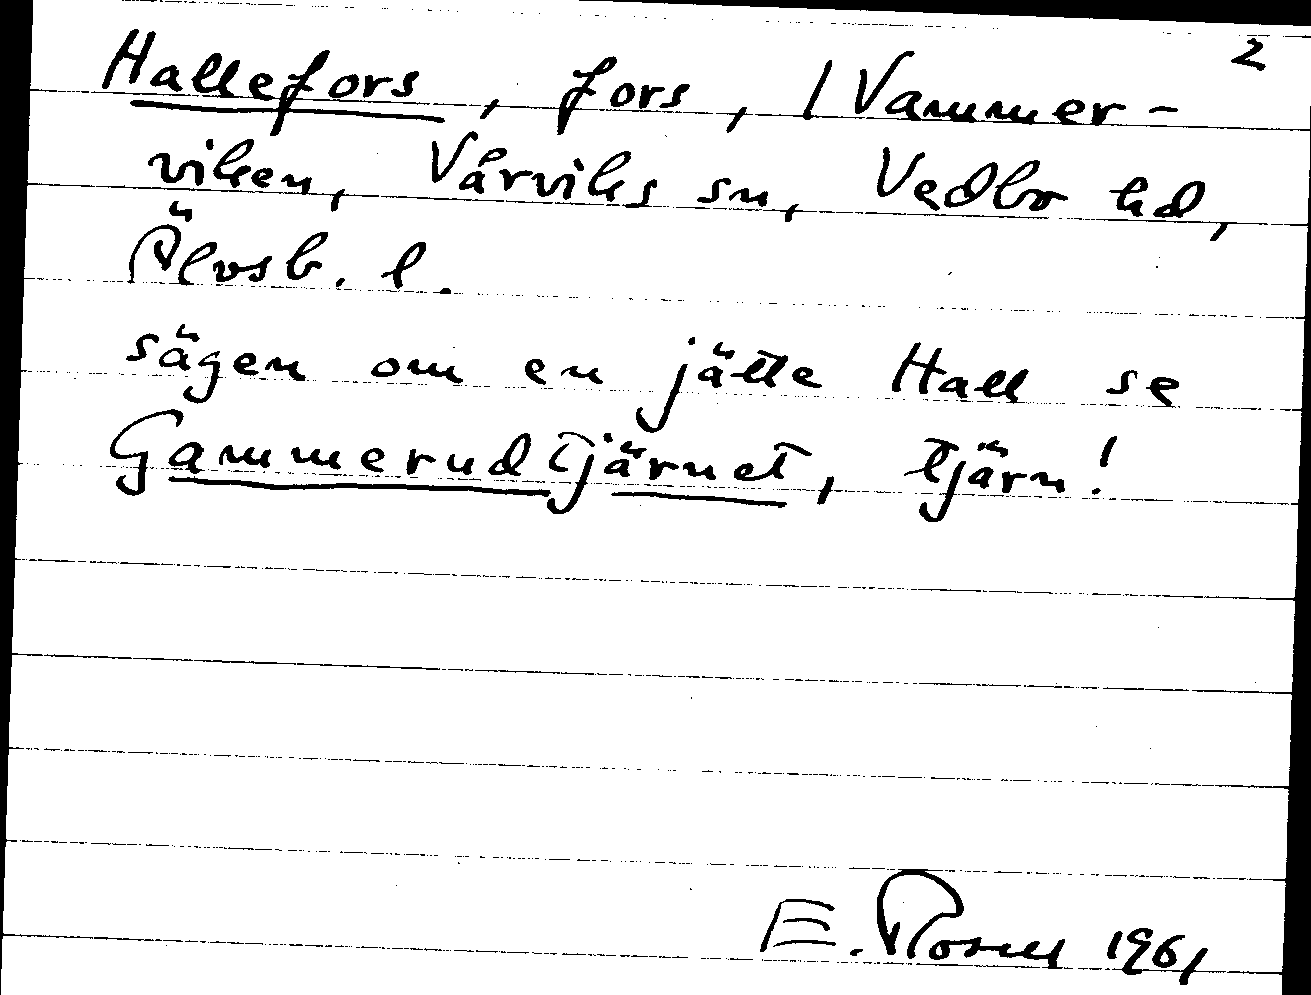 2
Hallefors, fors, / Vammer-
viken, Vårviks sn, Vedbo hd,
Älvsb. l.
sägen om en jätte Hall se
Gammerudtjärnet, tjärn!
E. Rosell 1961